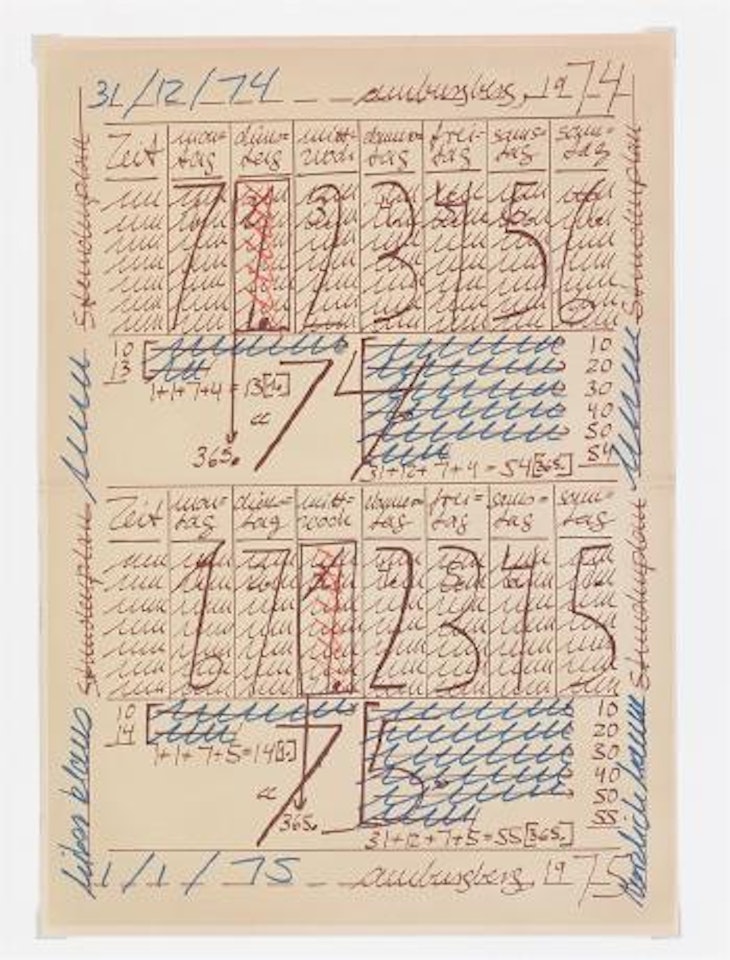 31/12/74 _ _ _ am burgberg, 1974
Stundenplan
Zeit mon= diens= mitt= donners= frei- sams= sonn=
tag tag woch tag tag tag tag
7 1. 2 3 4 5 6
Stundenplan
10
13
1+1+7+4=13[1.]
« 74
365.
10
20
30
40
50
54
31+12+7+4=54[365.]
Stundenplan
Zeit mon= diens= mitt= donners= frei= sams= sonn=
tag tag woch tag tag tag tag
6. 7 1. 2 3 4 5
Stundenplan
10
14
1+1+7+5=14[1.]
« 75
365.
10
20
30
40
50
55
31+12+7+5=55[365.]
lieber klaus
1/1/75 _ _ _ am burgberg, 1975